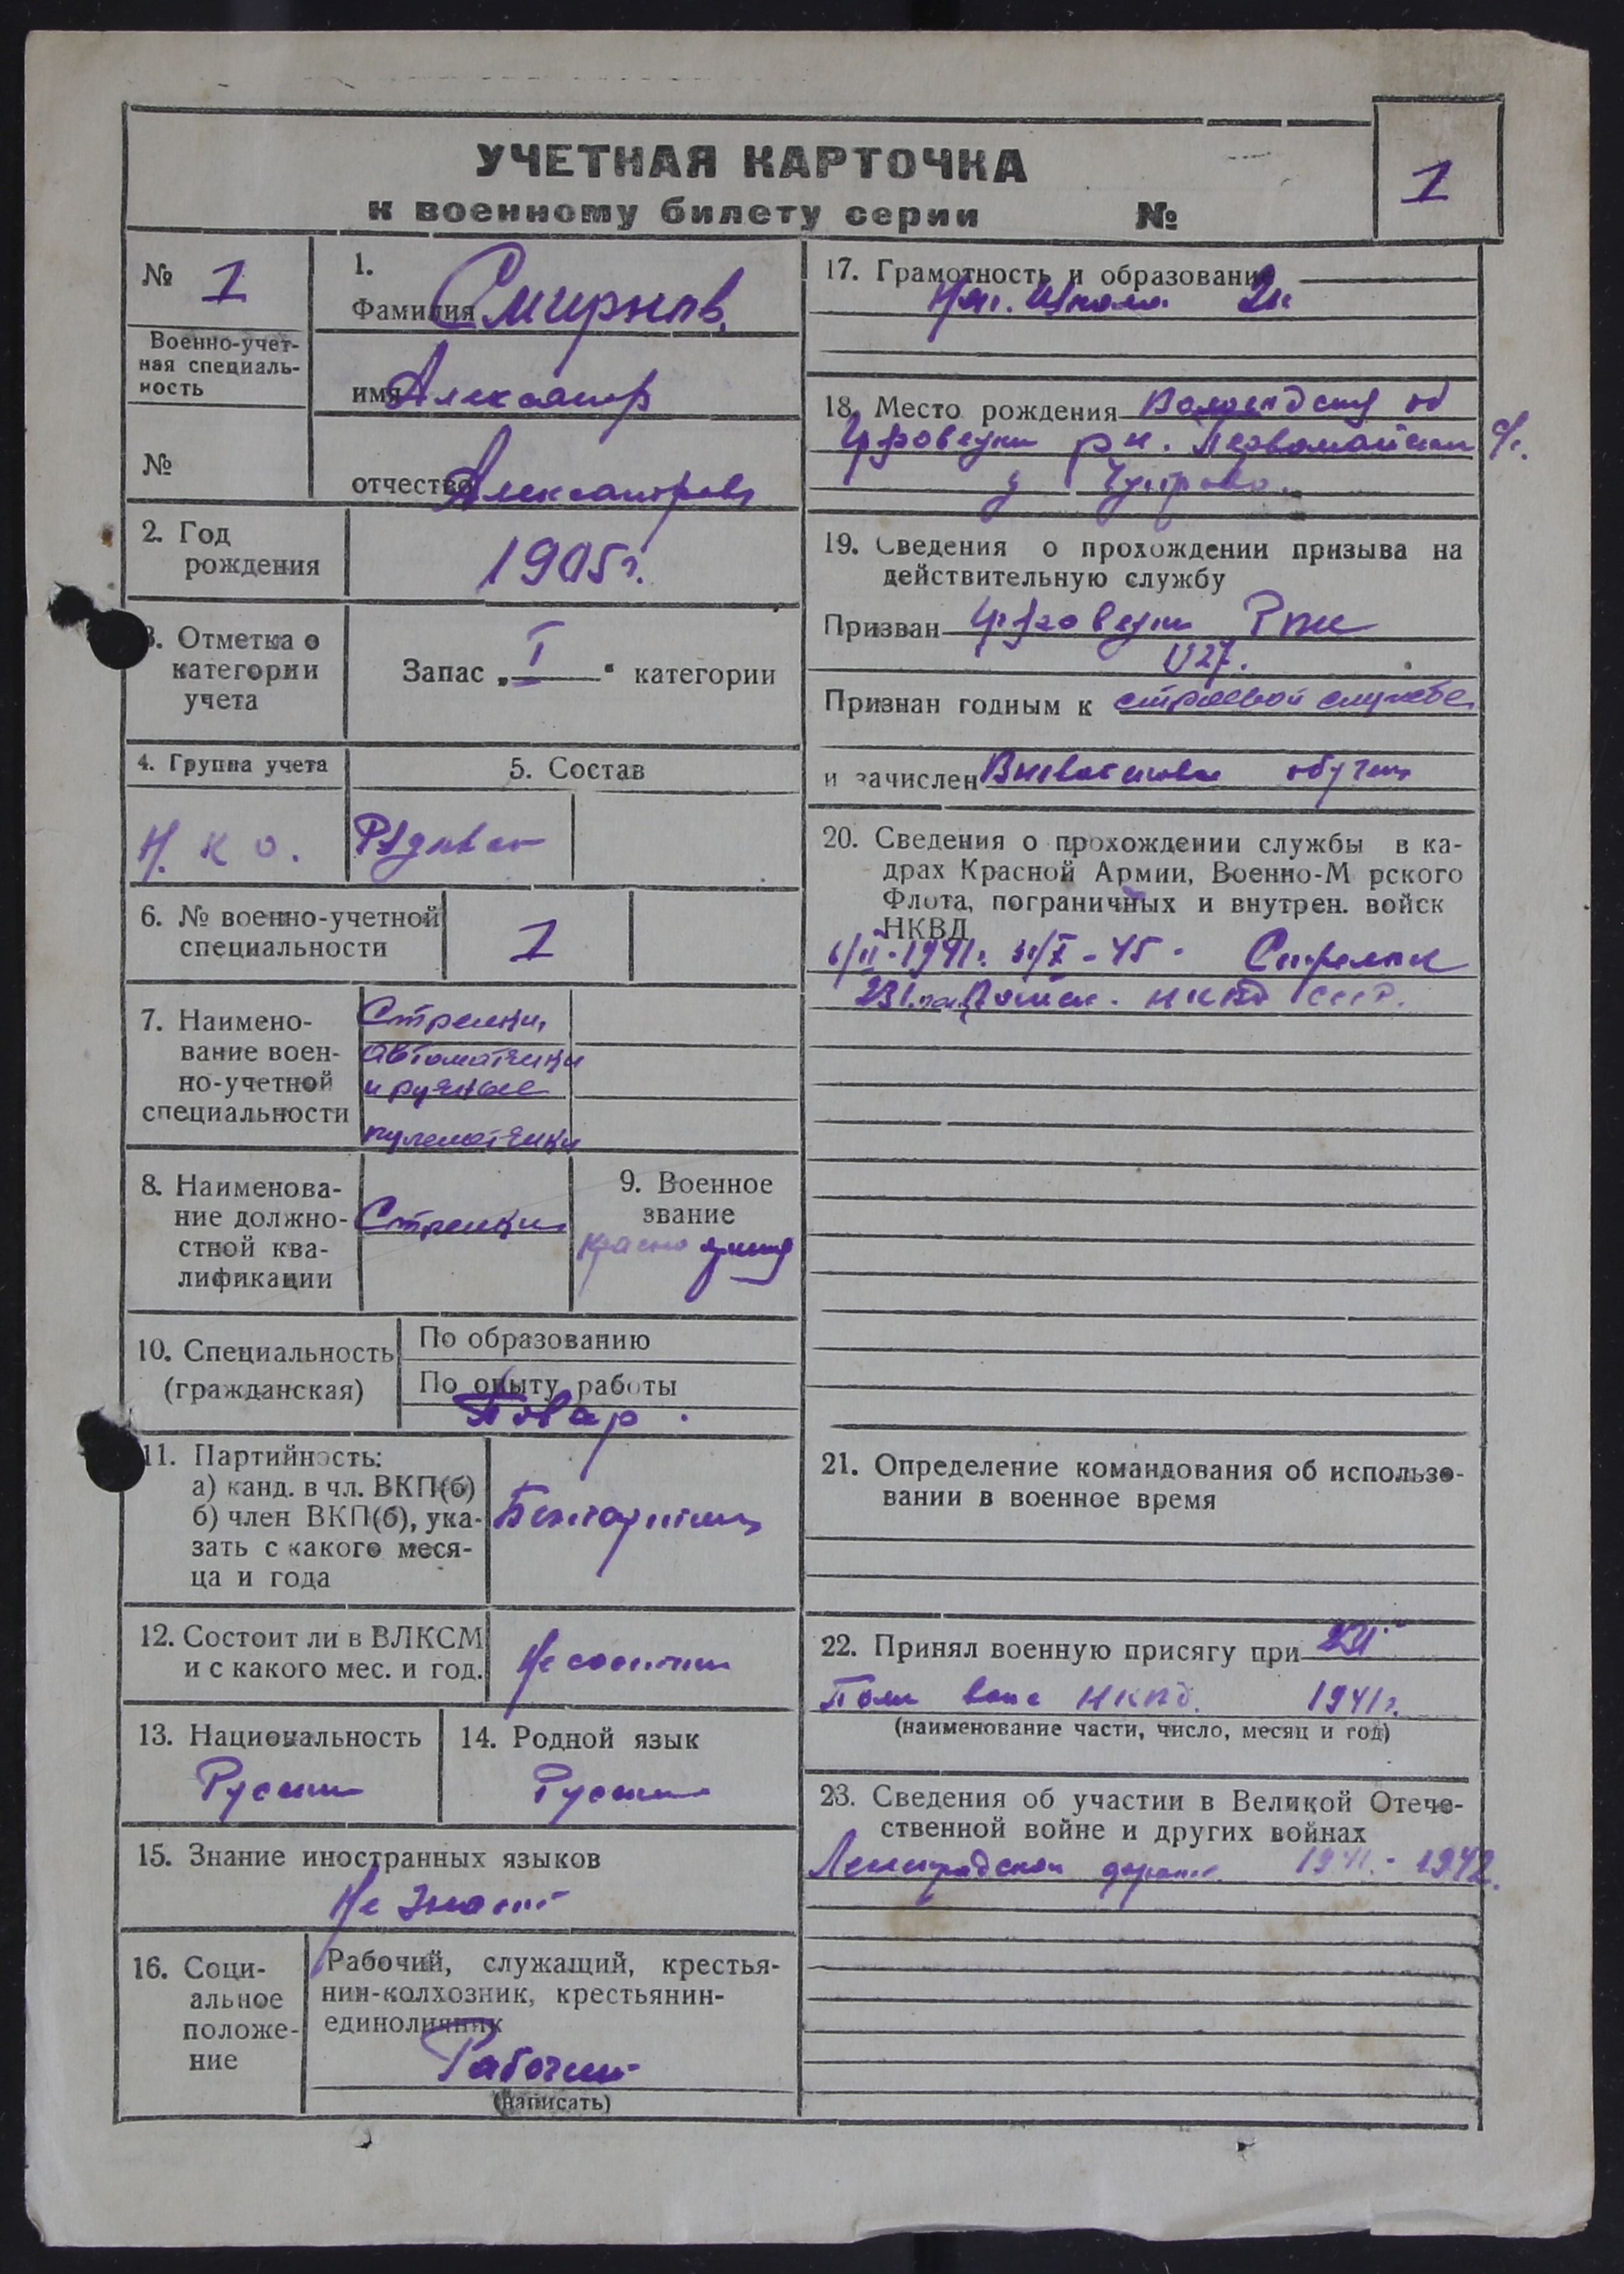 УЧЕТНАЯ КАРТОЧКА
к военному билету серии №
1
№ 1
Военно-учет-
ная специаль-
ность
№
1.
Фамилия Смирнов
имя Александр
отчество Александрови
2. Год
рождения
1905 г.
3. Отметка о
категории
учета
Запас „ I “ категории
4. Группа учета
Н. К О.
5. Состав
Рядовой
6. № военно-учетной
специальности
1
7. Наимено-
вание воен-
но-учетной
специальности
Стрелки,
автоматчики
и ручные
пулеметчики
8. Наименова-
ние должно-
стной ква-
лификации
Стрелки
9. Военное
звание
Красноармеец
10. Специальность
(гражданская)
По образованию
По опыту работы
Повар.
11. Партийность:
а) канд. в чл. ВКП(б)
б) член ВКП(б), ука-
зать с какого меся-
ца и года
Беспартийный
12. Состоит ли в ВЛКСМ
и с какого мес. и год.
Не состоит
13. Национальность
Русский
14. Родной язык
Русский
15. Знание иностранных языков
Не знает
16. Соци-
альное
положе-
ние
Рабочий, служащий, крестья-
нин-колхозник, крестьянин-
единоличник
Рабочий
(написать)
17. Грамотность и образование
Нач. школа 2к
18. Место рождения Вологодская об
рн. Первомайский с/с.
19. Сведения о прохождении призыва на
действительную службу
Призван РВК
Признан годным к строевой службе
и зачислен Вневойсковое обучен
20. Сведения о прохождении службы в ка-
драх Красной Армии, Военно-М рского
Флота, пограничных и внутрен. войск
НКВД
Стрелок
231 полк Войск. НКВД СССР.
21. Определение командования об использо-
вании в военное время
22. Принял военную присягу при 231
Полк войс НКВД. 1941 г.
(наименование части, число, месяц и год)
23. Сведения об участии в Великой Отече-
ственной войне и других войнах
Ленинградском фронте 1941 - 1942.